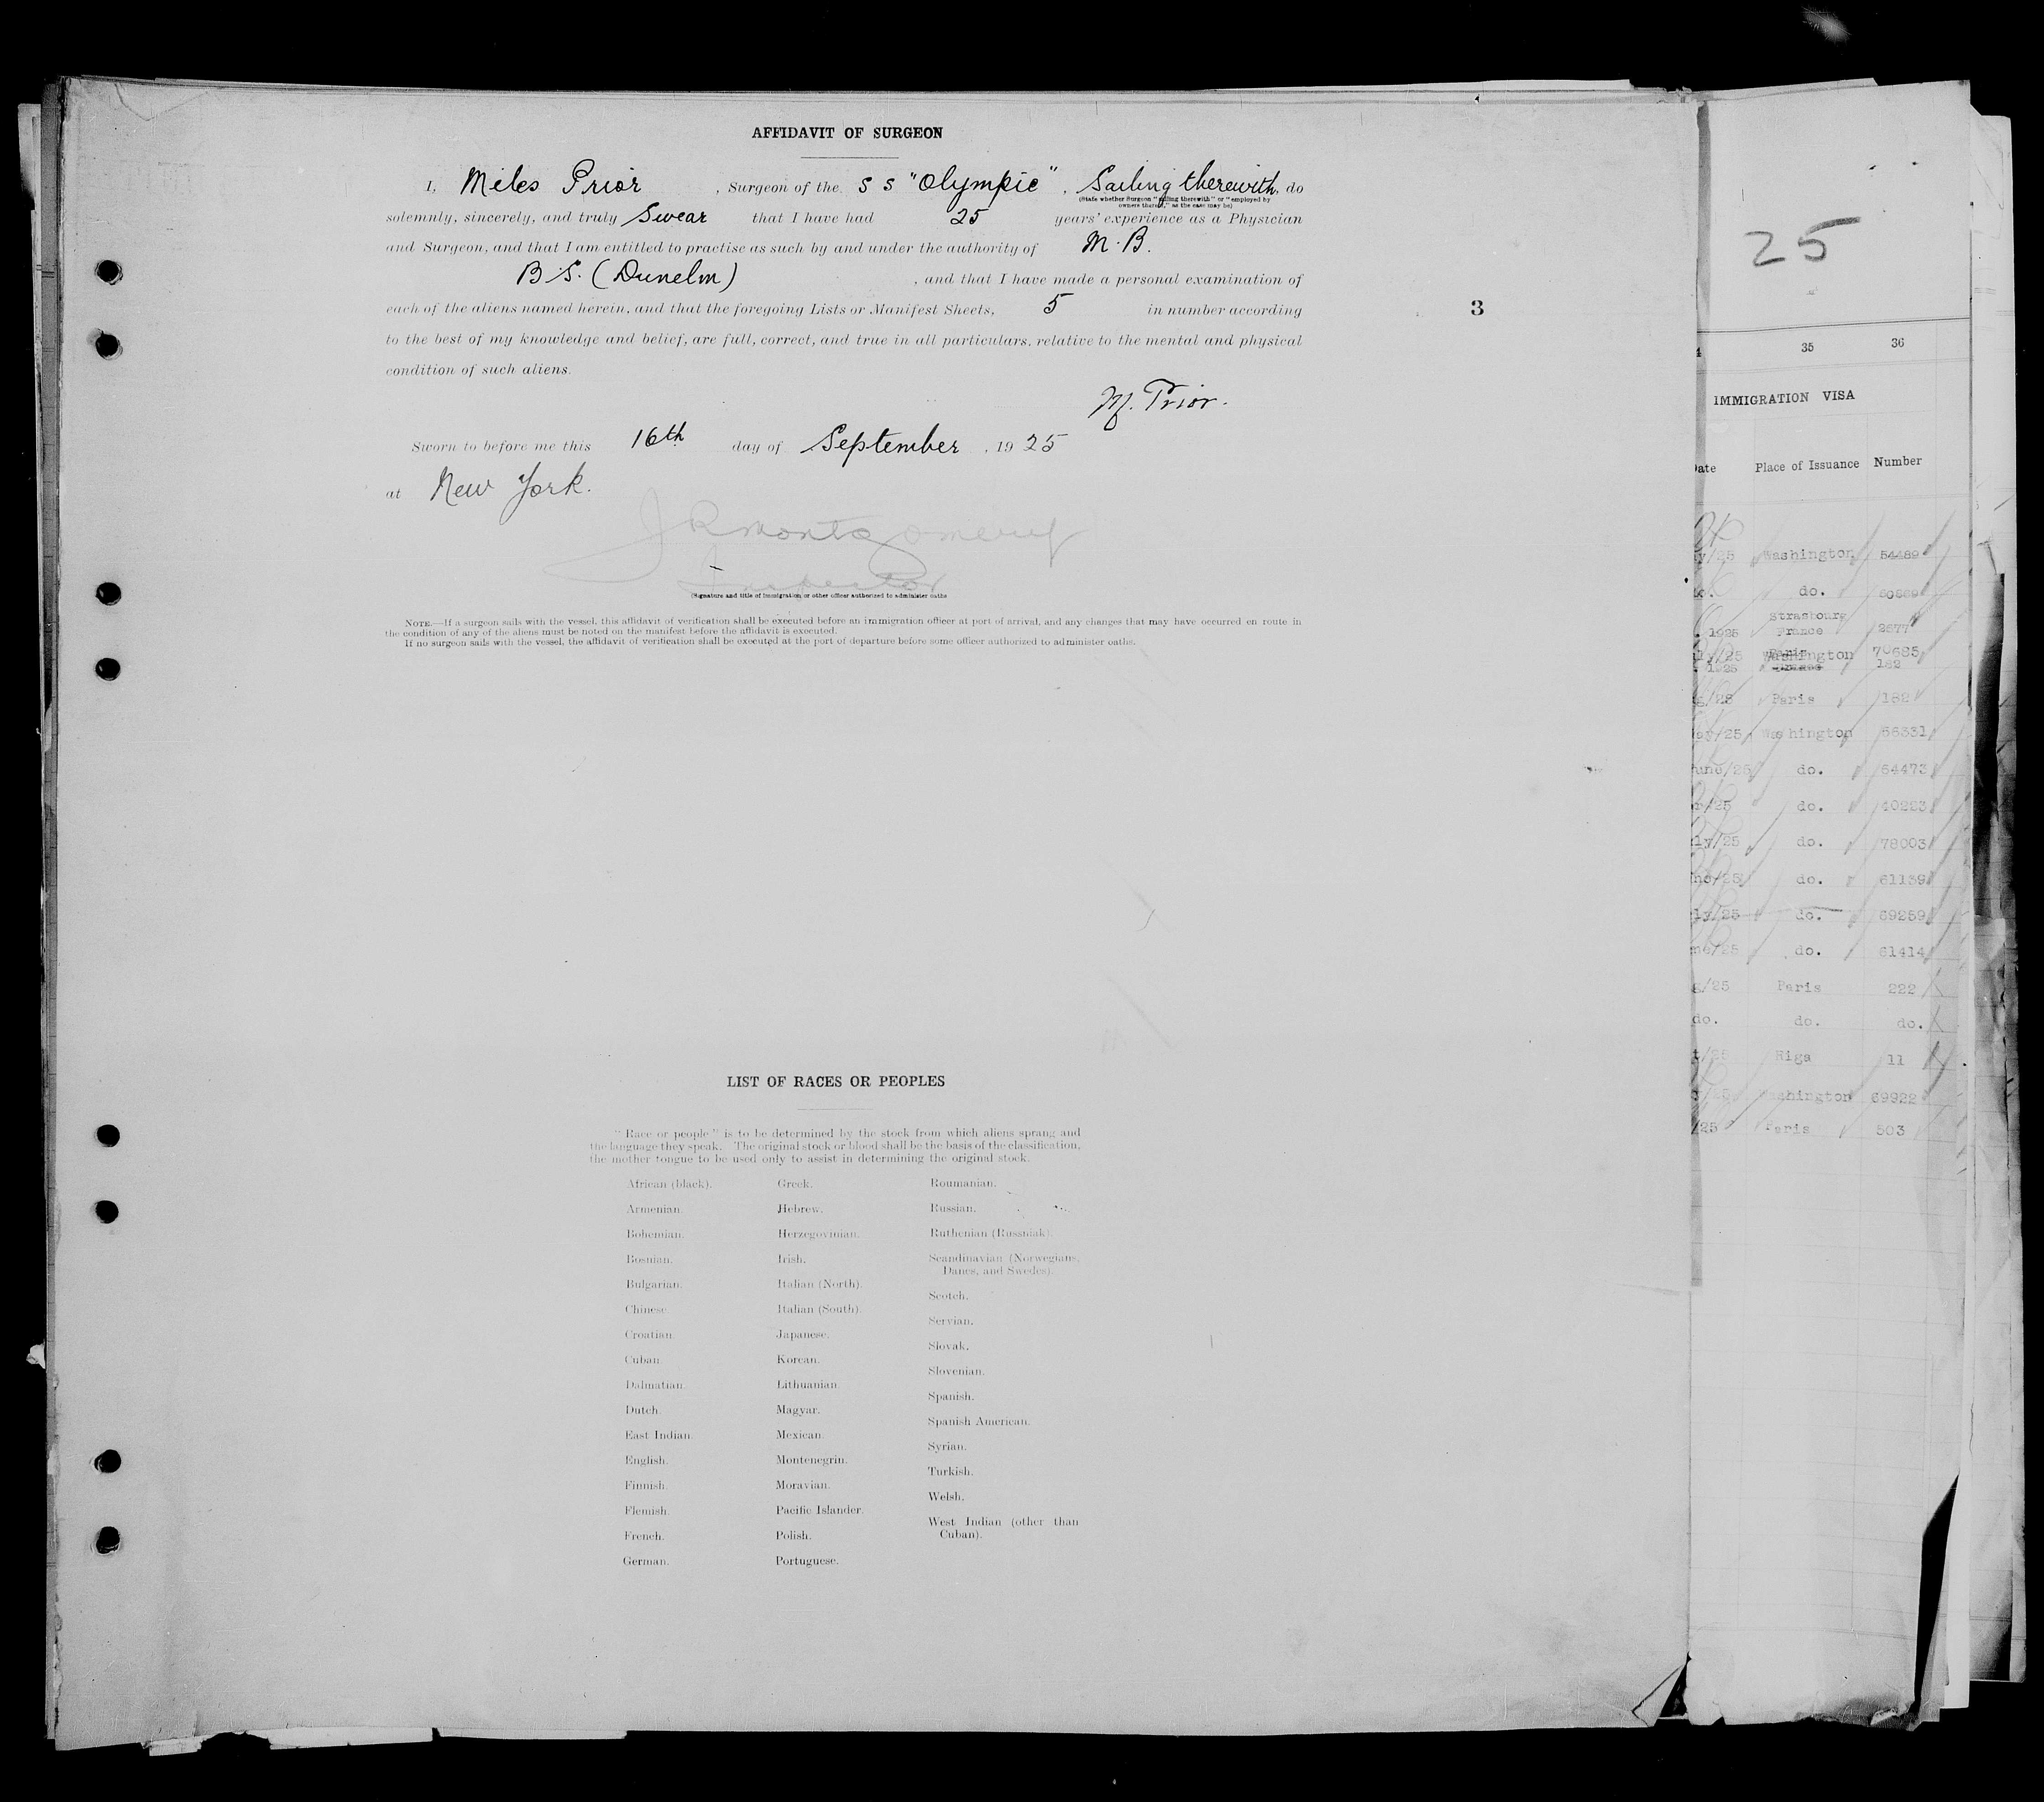 AFFIDAVIT OF SURGEON
I, Miles Prior, Surgeon of the S S "Olympic", Sailing therewith, do
(State whether Surgeon "sailing therewith" or "employed by
owners thereof," as the case may be)
solemnly, sincerely, and truly Swear that I have had 25 years' experience as a Physician
and Surgeon, and that I am entitled to practise as such by and under the authority of M.B.
B.S. (Dunelm), and that I have made a personal examination of
each of the aliens named herein, and that the foregoing Lists or Manifest Sheets, 5 in number according
to the best of my knowledge and belief, are full, correct, and true in all particulars, relative to the mental and physical
condition of such aliens.
3
M. Prior.
Sworn to before me this 16th day of September, 1925
at New York.
J R Montgomery
Inspector
(Signature and title of immigration or other officer authorized to administer oaths
NOTE.—If a surgeon sails with the vessel, this affidavit of verification shall be executed before an immigration officer at port of arrival, and any changes that may have occurred en route in
the condition of any of the aliens must be noted on the manifest before the affidavit is executed.
If no surgeon sails with the vessel, the affidavit of verification shall be executed at the port of departure before some officer authorized to administer oaths.
LIST OF RACES OR PEOPLES
"Race or people" is to be determined by the stock from which aliens sprang and
the language they speak. The original stock or blood shall be the basis of the classification,
the mother tongue to be used only to assist in determining the original stock.
African (black).
Armenian.
Bohemian.
Bosnian.
Bulgarian.
Chinese.
Croatian.
Cuban.
Dalmatian.
Dutch.
East Indian.
English.
Finnish.
Flemish.
French.
German.
Greek.
Hebrew.
Herzegovinian.
Irish.
Italian (North).
Italian (South).
Japanese.
Korean.
Lithuanian
Magyar.
Mexican.
Montenegrin.
Moravian.
Pacific Islander.
Polish.
Portuguese.
Roumanian.
Russian.
Ruthenian (Russniak).
Scandinavian (Norwegians,
Danes, and Swedes).
Scotch.
Servian.
Slovak.
Slovenian.
Spanish.
Spanish American.
Syrian.
Turkish.
Welsh.
West Indian (other than
Cuban).
25
35 36
IMMIGRATION VISA
Place of Issuance Number
/25 Washington 54489
do.
Strasbourg
1925 France 2577
ly/25 Washington 70685
1925 182
Paris 182
ay/25 Washington 56331
une/25 do. 54473
r/25 do. 40223
ly/25 do. 78003
ne/25 do. 61139
ly/25 do. 69259
ne/25 do. 61414
g/25 Paris 222
do. do. do.
t/25 Riga 11
/25 Washington 69922
/25 Paris 503